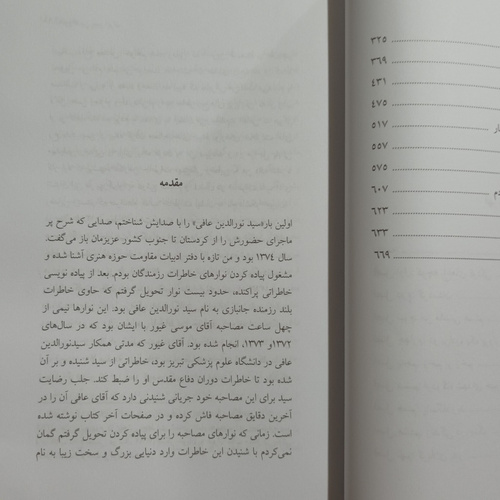 مقدمه
اولین بار «سید نورالدین عافی» را با صدایش شناختم، صدایی که شرح پر
ماجرای حضورش را از کردستان تا جنوب کشور عزیزمان باز می‌گفت.
سال ۱۳۷٤ بود و من تازه با دفتر ادبیات مقاومت حوزه هنری آشنا شده و
مشغول پیاده کردن نوارهای خاطرات رزمندگان بودم. بعد از پیاده نویسی
خاطراتی پراکنده، حدود بیست نوار تحویل گرفتم که حاوی خاطرات
بلند رزمنده جانبازی به نام سید نورالدین عافی بود. این نوارها نیمی از
چهل ساعت مصاحبه آقای موسی غیور با ایشان بود که در سال‌های
۱۳۷۲و ۱۳۷۳، انجام شده بود. آقای غیور که مدتی همکار سیدنورالدین
عافی در دانشگاه علوم پزشکی تبریز بود، خاطراتی از سید شنیده و بر آن
شده بود تا خاطرات دوران دفاع مقدس او را ضبط کند. جلب رضایت
سید برای این مصاحبه خود جریانی شنیدنی دارد که آقای عافی آن را در
آخرین دقایق مصاحبه فاش کرده و در صفحات آخر کتاب نوشته شده
است. زمانی که نوارهای مصاحبه را برای پیاده کردن تحویل گرفتم گمان
نمی‌کردم با شنیدن این خاطرات وارد دنیایی بزرگ و سخت زیبا به نام
۳۲۵
۳۶۹
٤۳۱
٤۷۵
۵۱۷
۵۵۷
۵۷۵
۶۰۷
۶۲۳
۶۳۳
۶۶۹